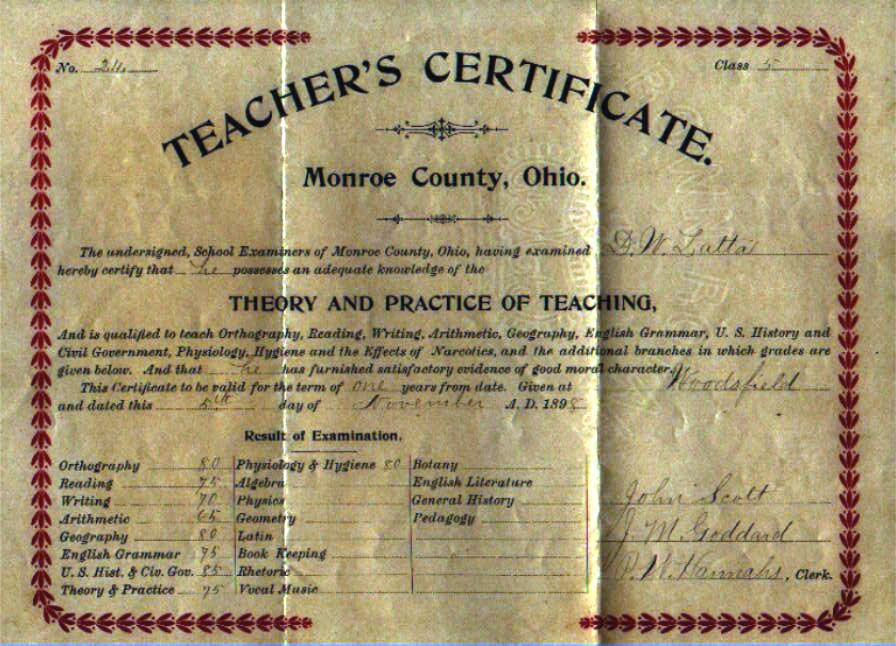 No. 24
Class 5
TEACHER'S CERTIFICATE.
Monroe County, Ohio.
The undersigned, School Examiners of Monroe County, Ohio, having examined D. W. Latta
hereby certify that he possesses an adequate knowledge of the
THEORY AND PRACTICE OF TEACHING,
And is qualified to teach Orthography, Reading, Writing, Arithmetic, Geography, English Grammar, U. S. History and
Civil Government, Physiology, Hygiene and the Effects of Narcotics, and the additional branches in which grades are
given below. And that he has furnished satisfactory evidence of good moral character.
This Certificate to be valid for the term of one years from date. Given at Woodsfield
and dated this 5th day of November A. D. 1898
Result of Examination.
Orthography 80 Physiology & Hygiene 80 Botany
Reading 75 Algebra English Literature
Writing 70 Physics General History
Arithmetic 65 Geometry Pedagogy
Geography 80 Latin
English Grammar 75 Book Keeping
U. S. Hist. & Civ. Gov. 85 Rhetoric
Theory & Practice 75 Vocal Music
John Scott
J. M. Goddard
P. W. , Clerk.